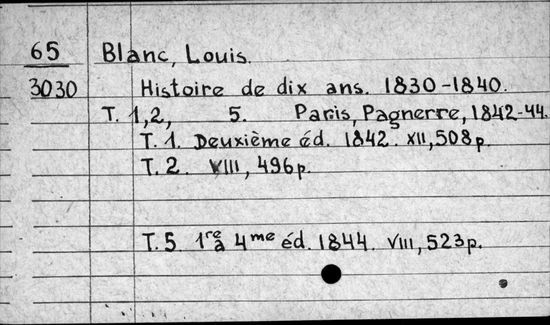 65 Blanc, Louis.
3030 Histoire de dix ans. 1830-1840.
T. 1, 2, 5. Paris, Pagnerre, 1842-44.
T. 1. Deuxième éd. 1842. XII, 508 p.
T. 2. VIII, 496 p.
T. 5 1re à 4me éd. 1844. VIII, 523 p.